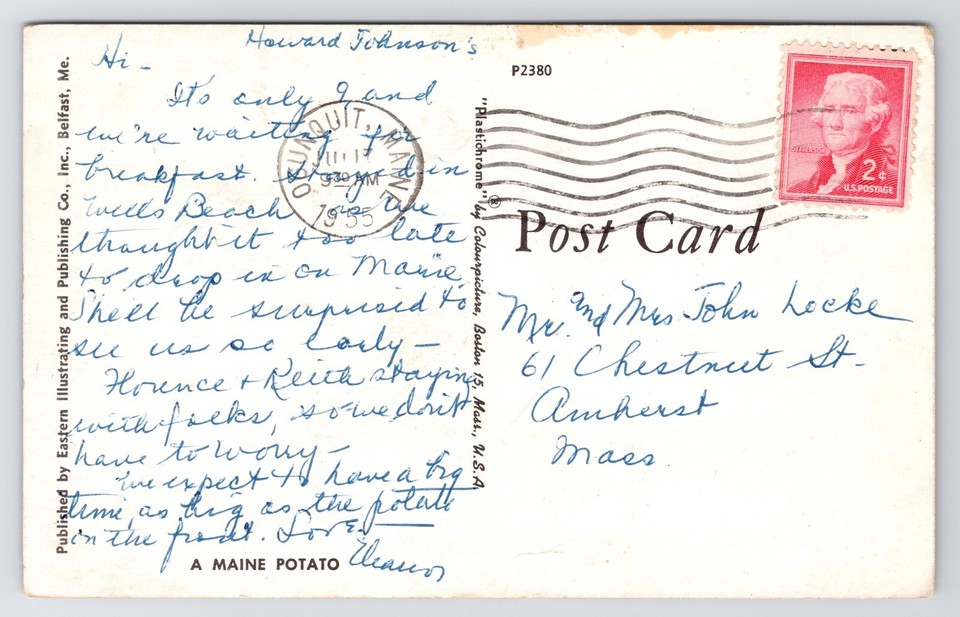 Howard Johnson's
Hi -
It's only 9 and
we're waiting for
breakfast. Stayed in
Wells Beach as we
thought it too late
to drop in on Marie.
She'll be surprised to
see us so early -
Florence + Keith staying
with folks, so we don't
have to worry -
We expect to have a big
time, as big as the potato
in the front. Love,
Eleanor
A MAINE POTATO
Published by Eastern Illustrating and Publishing Co., Inc., Belfast, Me.
OGUNQUIT, MAINE
9 30 AM
1955
"Plastichrome"® by Colourpicture, Boston 15, Mass., U.S.A.
P2380
JEFFERSON
2¢
U.S. POSTAGE
Post Card
Mr. and Mrs John Locke
61 Chestnut St.
Amherst
Mass.